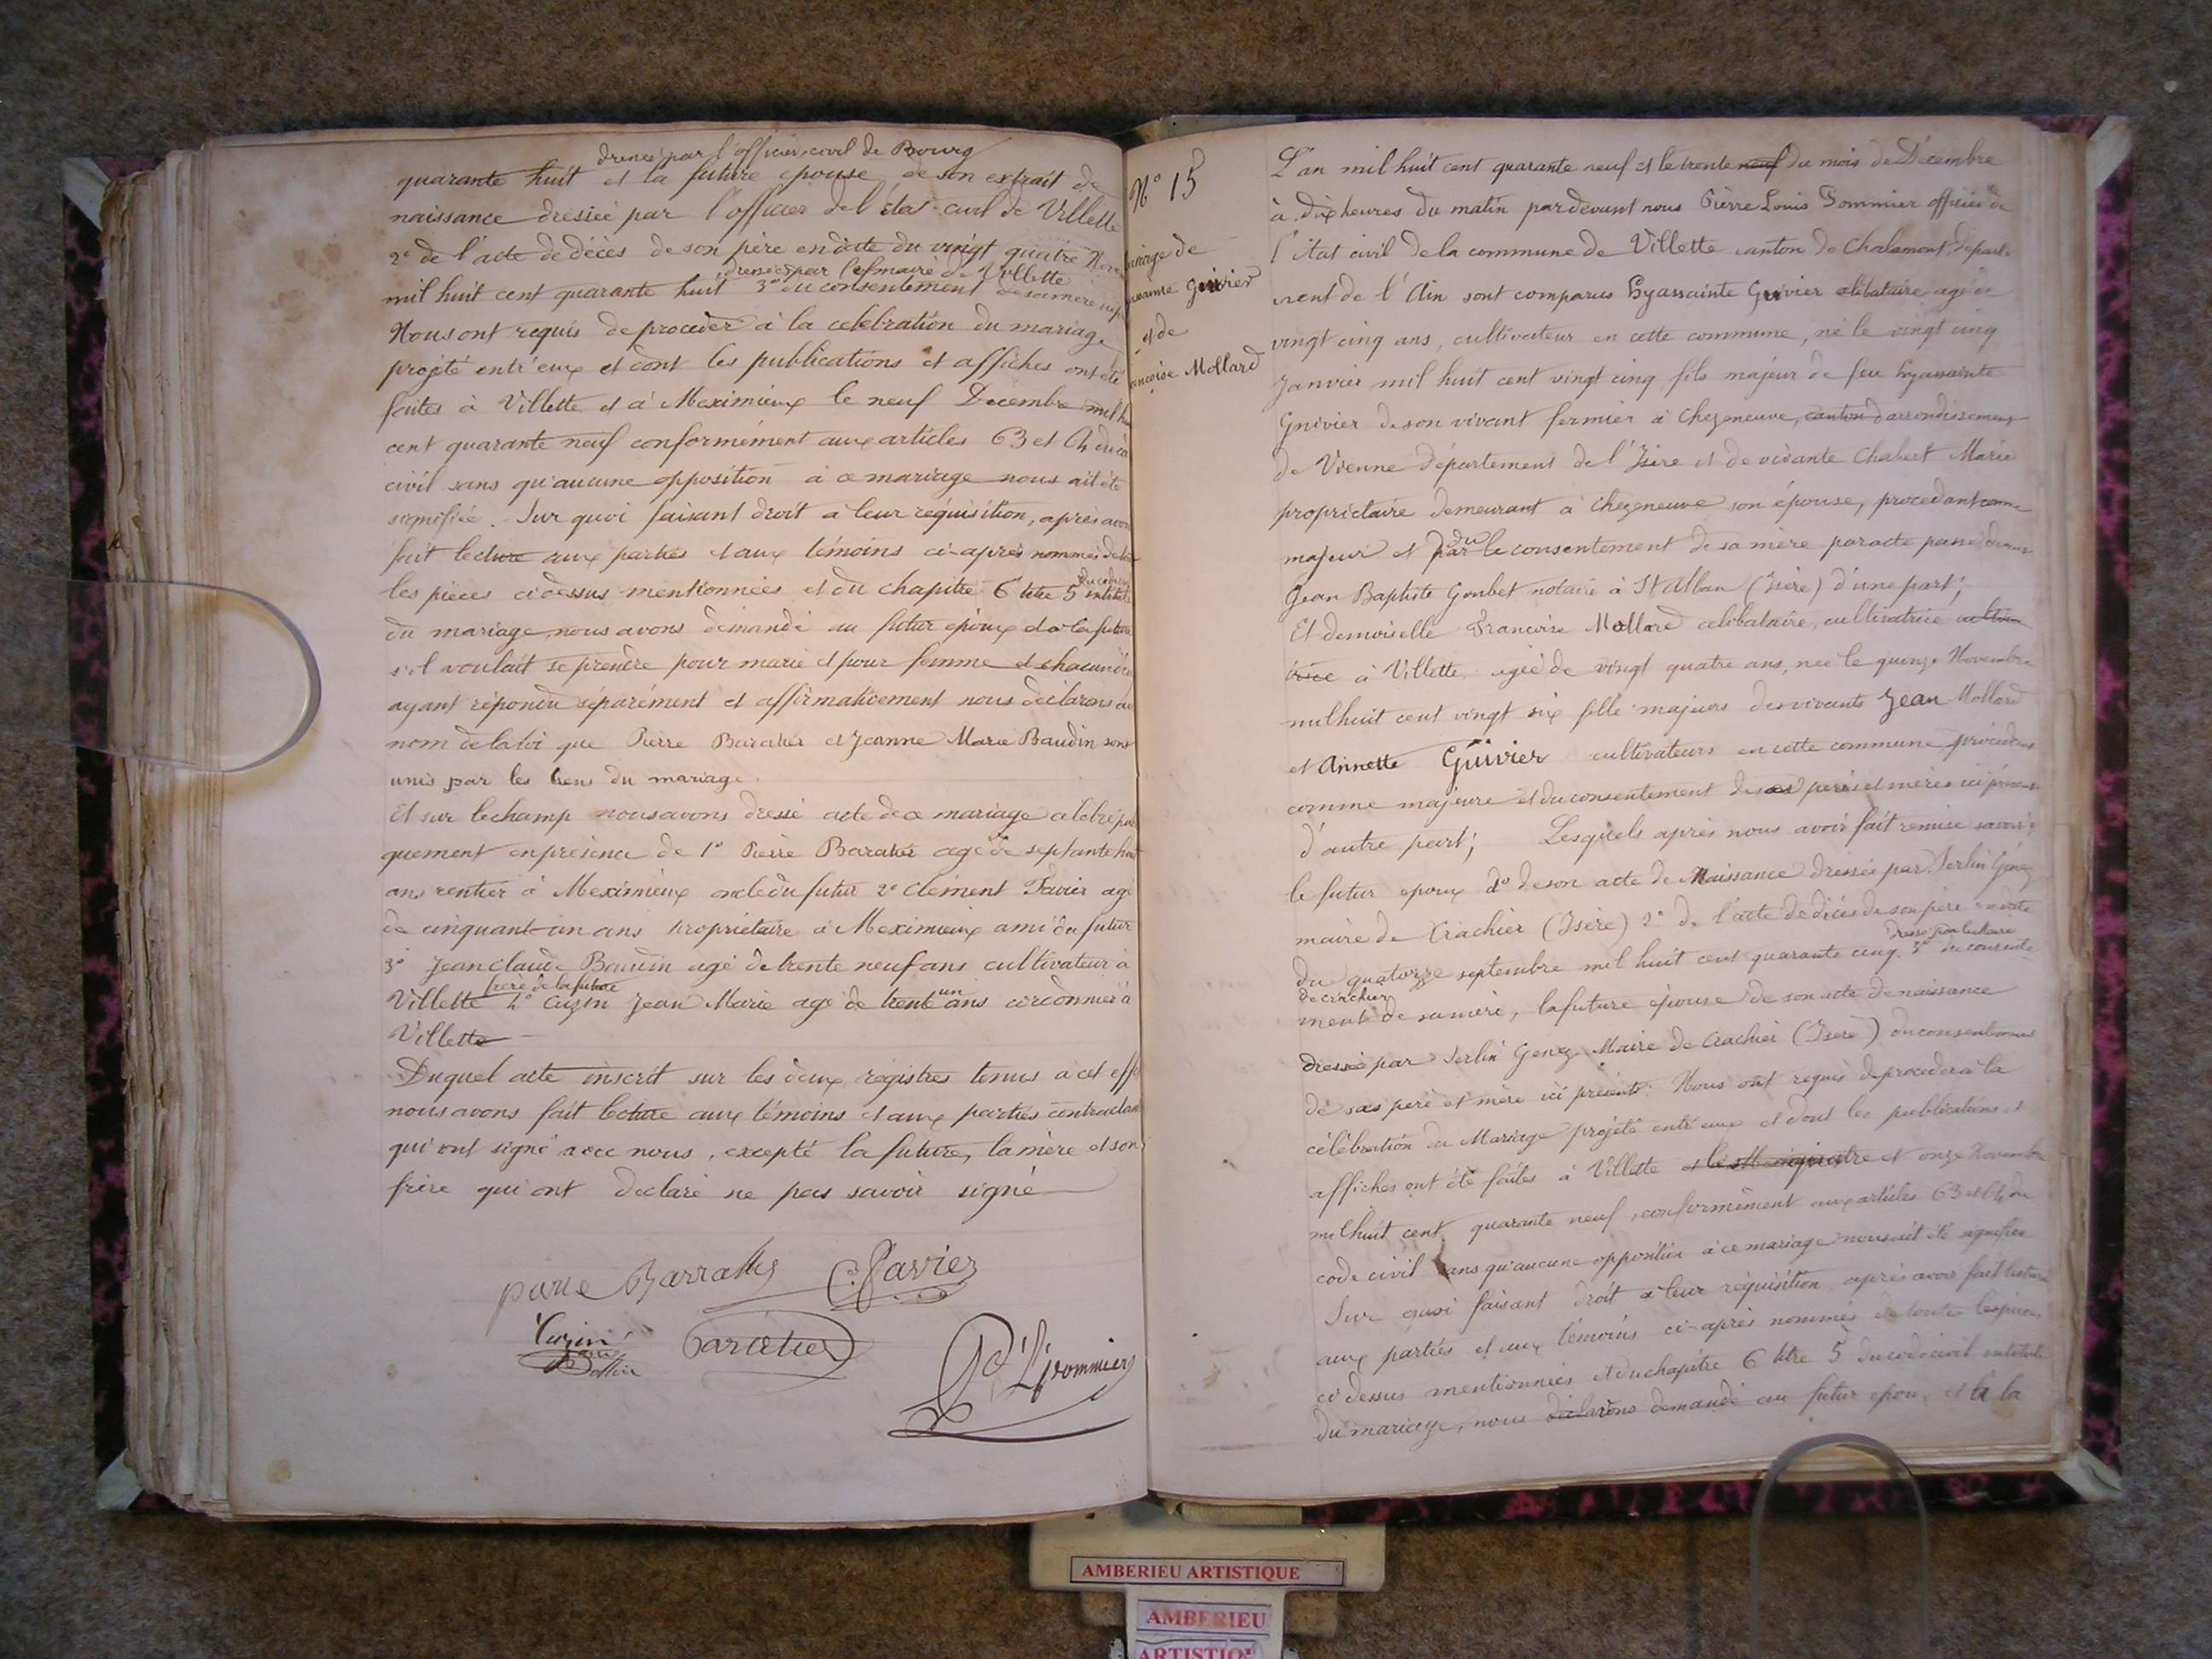 dressé par l'officier civil de Bourg
quarante huit et la future epouse de son extrait de
naissance dressée par l'officier de l'état civil de Villette
2° de l'acte de décès de son père en date du vingt quatre
dressée par le maire de Villette
mil huit cent quarante huit 3° du consentement de sa mère
Nous ont requis de proceder à la celebration du mariage
projété entr'eux et dont les publications et affiches ont été
faites à Villette et à Meximieux le neuf Décembre mil
cent quarante neuf conformément aux articles 63 et 64 du
civil sans qu'aucune opposition à ce mariage nous ait été
signifiée. Sur quoi faisant droit a leur réquisition, après avoir
fait lecture aux parties et aux témoins ci-après nommés de
les pièces ci dessus mentionnées et du chapitre 6 titre 5 intitulé
du mariage, nous avons demandé au futur époux et a la future
s'il voulait se prendre pour marie et pour femme et chacun d'eux
ayant répondu séparément et affirmativement nous déclarons au
nom de la loi que Pierre Baratier et Jeanne Marie Baudin sont
unis par les liens du mariage.
Et sur le champ nous avons dressé acte de ce mariage célébré
quement en présence de 1° Pierre Baratier agé de septante huit
ans rentier à Meximieux oncle du futur 2° Clément Favier agé
de cinquant un ans propriétaire à Meximieux ami du futur
3° Jean Claude Baudin agé de trente neuf ans cultivateur à
frère de la future
Villette 4° Cuzin Jean Marie agé de trente un ans cordonnier à
Villette
Duquel acte inscrit sur les deux registres tenus à cet effet
nous avons fait lecture aux témoins et aux parties contractantes
qui ont signé avec nous, excepté la future, la mère et son
frère qui ont declaré ne pas savoir signé
C. Favier
Cuzin
Baratier
N° 15
Guivier
et de
Mollard
L'an mil huit cent quarante neuf et le trente neuf du mois de Décembre
à dix heures du matin pardevant nous Pierre Louis Pommier officier de
l'état civil de la commune de Villette canton de Chalamont, départe
ment de l'Ain sont comparus hyassainte Guivier célibataire agé de
vingt cinq ans, cultivateur en cette commune, né le vingt cinq
Janvier mil huit cent vingt cinq fils majeur de feu hyassainte
Guivier de son vivant fermier à Chezeneuve, canton d'arrondissement
de Vienne département de l'Isère et de vivante Chabert Marie
propriétaire demeurant à Chezeneuve son épouse, procédant comme
majeur et par du le consentement de sa mère par acte passé devant
Jean Baptiste Goubet notaire à St Alban (Isère) d'une part;
Et demoiselle Francoise Mollard célibataire, cultivatrice
à Villette agée de vingt quatre ans, née le quinze Novembre
mil huit cent vingt six fille majeure des vivants Jean Mollard
et Annette Guivier cultivateurs en cette commune procédant
comme majeure et du consentement de ses père et mère ici présents
d'autre part; Lesquels après nous avoir fait remise savoir:
le futur epoux 1° de son acte de Naissance dressée par Serlin Genez
maire de Crachier (Isère) 2° de l'acte de décès de son père en date
dressé par le maire
du quatorze septembre mil huit cent quarante cinq. 3° du consente
de crachier
ment de sa mère, la future épouse de son acte de naissance
dressée par Serlin Genez Maire de Crachier (Isère) du consentement
de ses père et mère ici présents. Nous ont requis de proceder à la
célébration du Mariage projété entr'eux et dont les publications et
affiches ont été faites à Villette et onze Novembre
mil huit cent quarante neuf, conformément aux articles 63 et 64 du
code civil sans qu'aucune opposition à ce mariage nous ait été signifiée
Sur quoi faisant droit à leur réquisition après avoir fait lecture
aux parties et aux témoins ci-après nommés de toutes les pièces
ci dessus mentionnées et du chapitre 6 titre 5 du code civil intitulé
du mariage, nous déclarons demandé au futur epoux et à la
AMBERIEU ARTISTIQUE
AMBERIEU